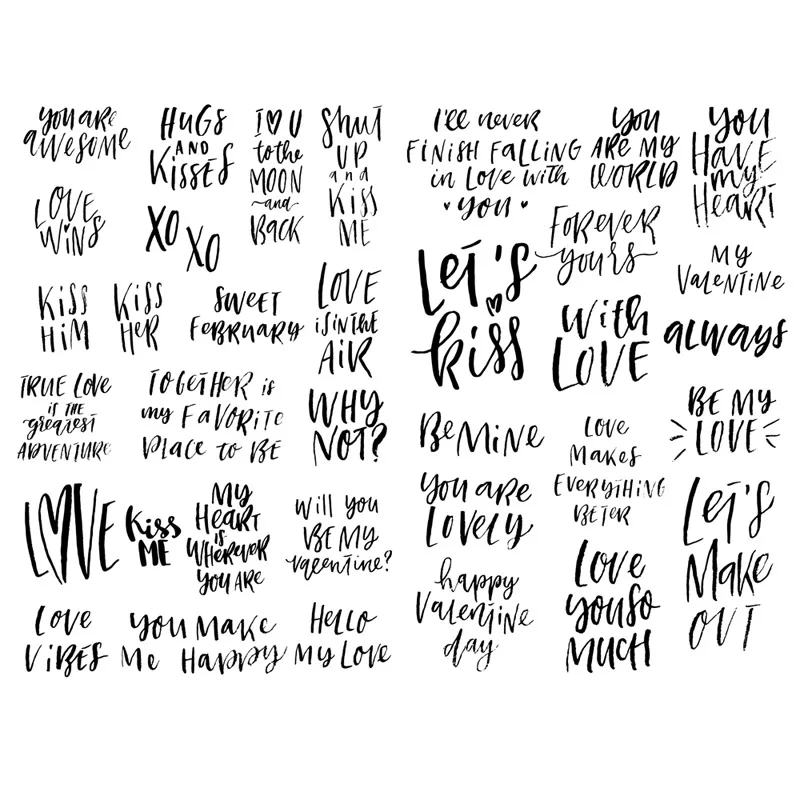 you are
awesome
HUGS
AND
KISSES
I ♥ U
to the
MOON
~and~
BACK
Shut
UP
and
KISS
ME
LOVE
WINS
XO
XO
KISS
HIM
KISS
HER
SWEET
FEBRUARY
LOVE
is IN THE
AIR
TRUE LOVE
is THE
greatest
ADVENTURE
TOGETHER is
my FAVORITE
PLACE to BE
WHY
NOT?
LOVE
Kiss
ME
MY
HEART
is
WHEREVER
YOU ARE
Will you
BE MY
valentine?
LOVE
VIBES
YOU MAKE
Me HAPPY
HELLO
MY LOVE
I'll never
FINISH FALLING
in Love with
• you •
YOU
ARE MY
WORLD
YOU
HAVE
my
HEART
FOREVER
yours
LET'S
kiss
MY
VALENTINE
With
LOVE
always
BE MINE
LOVE
MAKES
EVERYTHING
BETTER
BE MY
LOVE
YOU ARE
LOVELY
LET'S
MAKE
OUT
happy
Valentine
day
Love
you so
MUCH